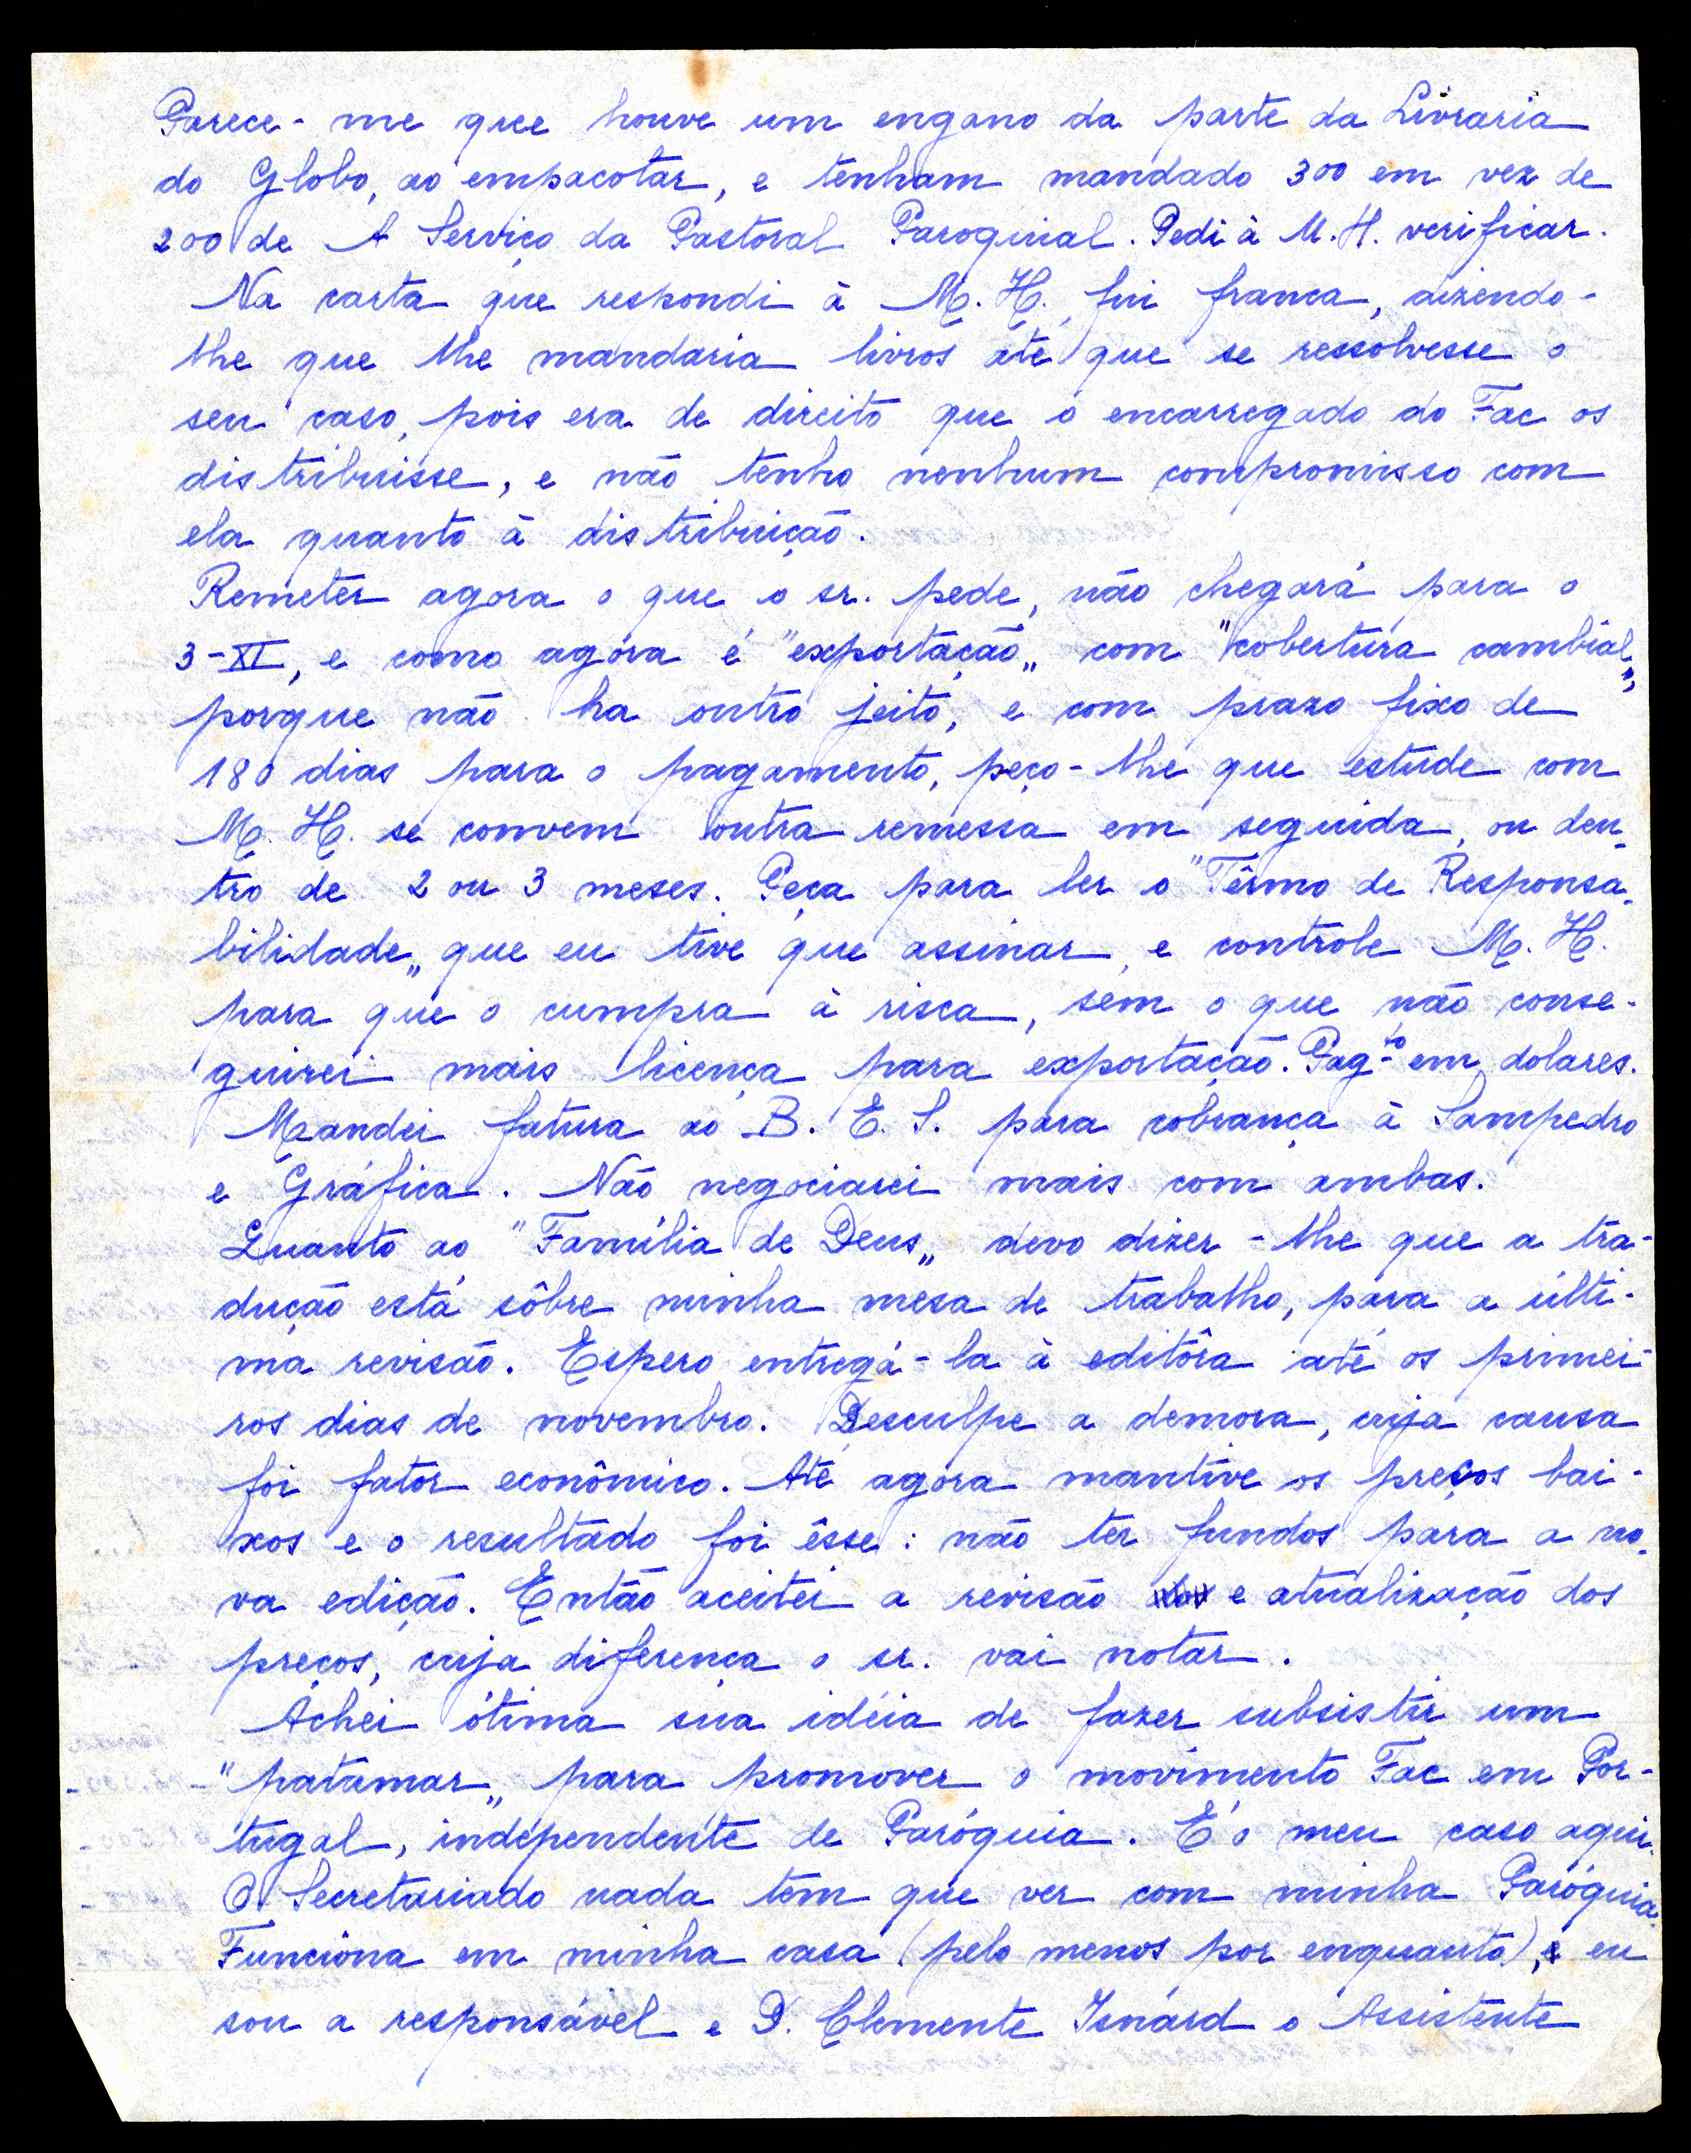 Parece-me que houve um engano da parte da Livraria
do Globo, ao empacotar, e tenham mandado 300 em vez de
200 de A Serviço da Pastoral Paroquial. Pedi à M. H. verificar.
Na carta que respondi à M. H., fui franca, dizendo-
lhe que lhe mandaria livros até que se ressolvesse o
seu caso, pois era de direito que o encarregado do Fac os
distribuisse, e não tenho nenhum compromisso com
ela quanto à distribuição.
Remeter agora o que o sr. pede, não chegará para o
3-XI, e como agora é "exportação„ com "cobertura cambial„,
porque não ha outro jeito, e com prazo fixo de
180 dias para o pagamento, peço-lhe que estude com
M. H. se convem outra remessa em seguida, ou den-
tro de 2 ou 3 meses. Peça para ler o "Têrmo de Responsa-
bilidade„ que eu tive que assinar, e controle M. H.
para que o cumpra à risca, sem o que não conse-
guirei mais licença para exportação. Pagto em dolares.
Mandei fatura ao B. E. S. para cobrança à Sampedro
e Gráfica. Não negociarei mais com ambas.
Quanto ao "Família de Deus„ devo dizer-lhe que a tra-
dução está sôbre minha mesa de trabalho, para a últi-
ma revisão. Espero entregá-la à editôra até os primei-
ros dias de novembro. Desculpe a demora, cuja causa
foi fator econômico. Até agora mantive os preços bai-
xos e o resultado foi êsse: não ter fundos para a no-
va edição. Então aceitei a revisão e atualização dos
preços, cuja diferença o sr. vai notar.
Achei ótima sua idéia de fazer subsistir um
"patamar„ para promover o movimento Fac em Por-
tugal, independente de Paróquia. É o meu caso aqui.
O Secretariado nada tem que ver com minha Paróquia.
Funciona em minha casa (pelo menos por enquanto), e eu
sou a responsável e D. Clemente Isnard o Assistente